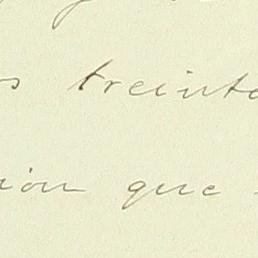 s treinte
ion que